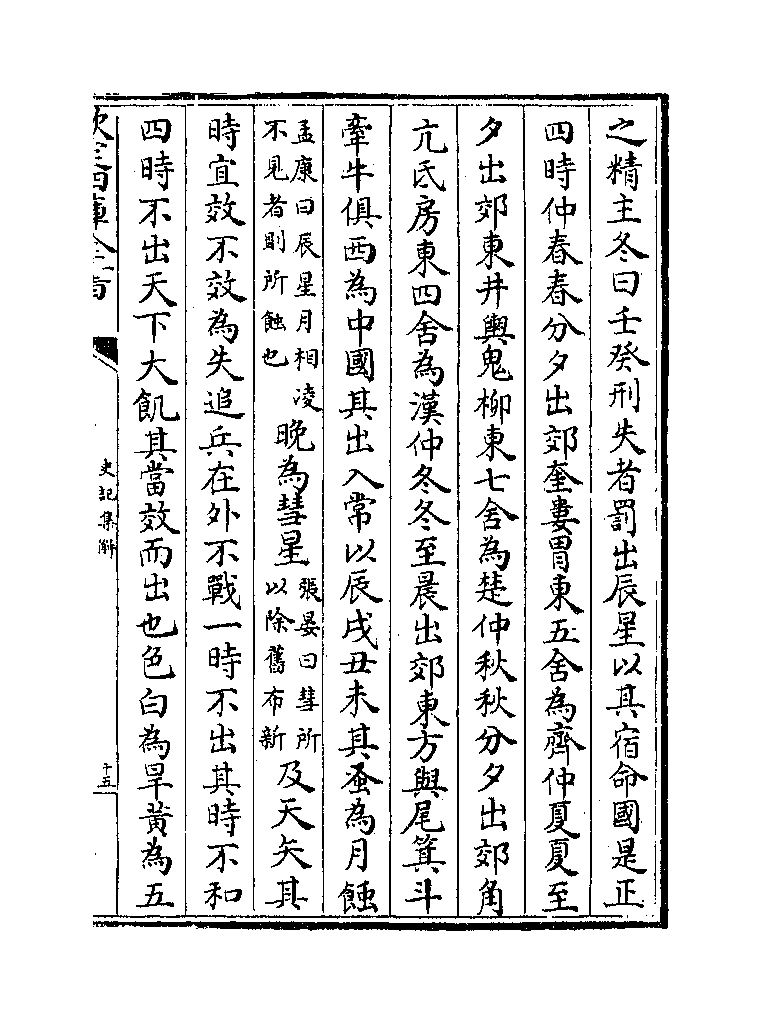 之精主冬曰壬癸刑失者罰出辰星以其宿命國是正
四時仲春春分夕出郊奎婁胃東五舍為齊仲夏夏至
夕出郊東井輿鬼柳東七舍為楚仲秋秋分夕出郊角
亢氐房東四舍為漢仲冬冬至晨出郊東方與尾箕斗
牽牛俱西為中國其出入常以辰戌丑未其蚤為月蝕
孟康曰辰星月相凌
不見者則所蝕也
晚為彗星
張晏曰彗所
以除舊布新
及天矢其
時宜效不效為失追兵在外不戰一時不出其時不和
四時不出天下大飢其當效而出也色白為旱黃為五
欽定四庫全書
史記集解
十五